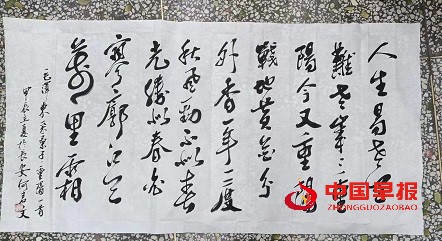 人生易老天
難老歲々重
陽今又重陽
戰地黄花分
外香一年一度
秋風勁不似春
光勝似春光
寥廓江天
萬里霜
毛澤東采桑子重陽一首
甲辰立夏 長安何
中国早报
ZHONGGUOZAOBAO